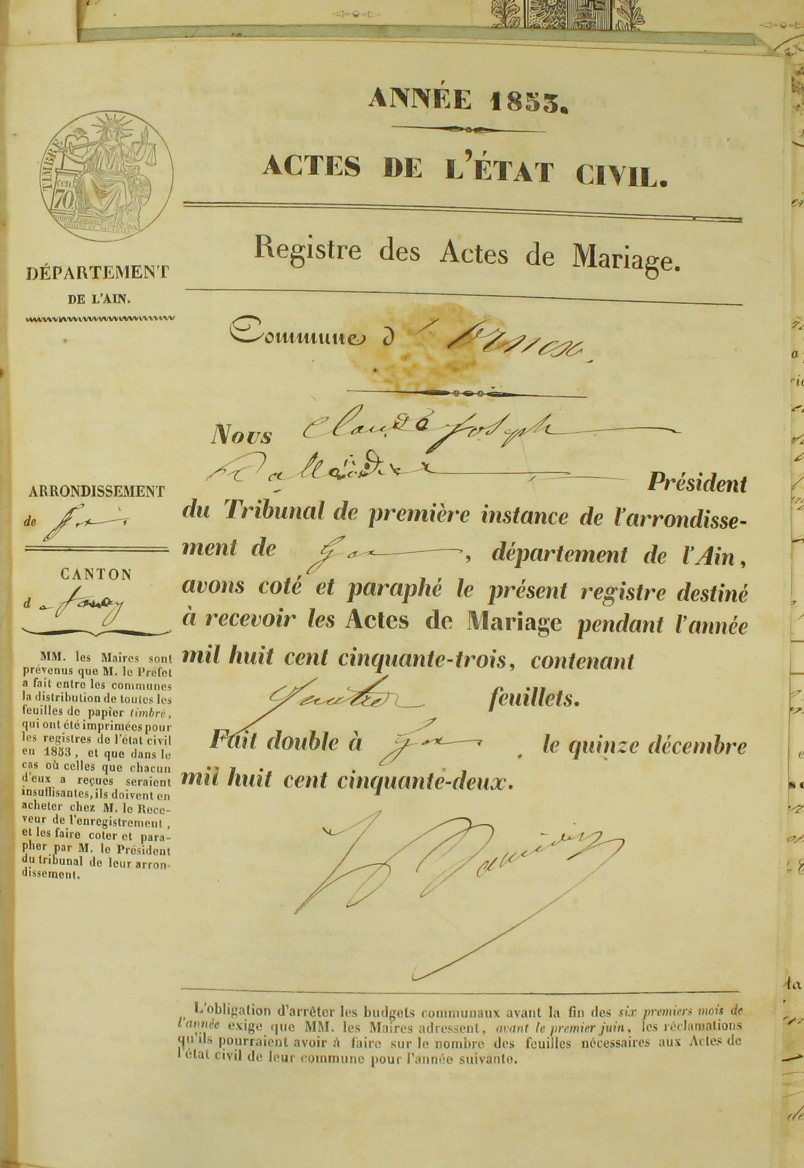 ANNÉE 1853.
ACTES DE L'ÉTAT CIVIL.
Registre des Actes de Mariage.
TIMBRE
70
DÉPARTEMENT
DE L'AIN.
Commune d'Ornex.
Nous Claude Joseph
Président
du Tribunal de première instance de l'arrondisse-
ment de Gex, département de l'Ain,
avons coté et paraphé le présent registre destiné
à recevoir les Actes de Mariage pendant l'année
mil huit cent cinquante-trois, contenant
feuillets.
Fait double à Gex, le quinze décembre
mil huit cent cinquante-deux.
ARRONDISSEMENT
de Gex
CANTON
de Ferney
MM. les Maires sont
prévenus que M. le Préfet
a fait entre les communes
la distribution de toutes les
feuilles de papier timbré,
qui ont été imprimées pour
les registres de l'état civil
en 1853, et que dans le
cas où celles que chacun
d'eux a reçues seraient
insuffisantes, ils doivent en
acheter chez M. le Rece-
veur de l'enregistrement,
et les faire coter et para-
pher par M. le Président
du tribunal de leur arron-
dissement.
L'obligation d'arrêter les budgets communaux avant la fin des six premiers mois de
l'année exige que MM. les Maires adressent, avant le premier juin, les réclamations
qu'ils pourraient avoir à faire sur le nombre des feuilles nécessaires aux Actes de
l'état civil de leur commune pour l'année suivante.